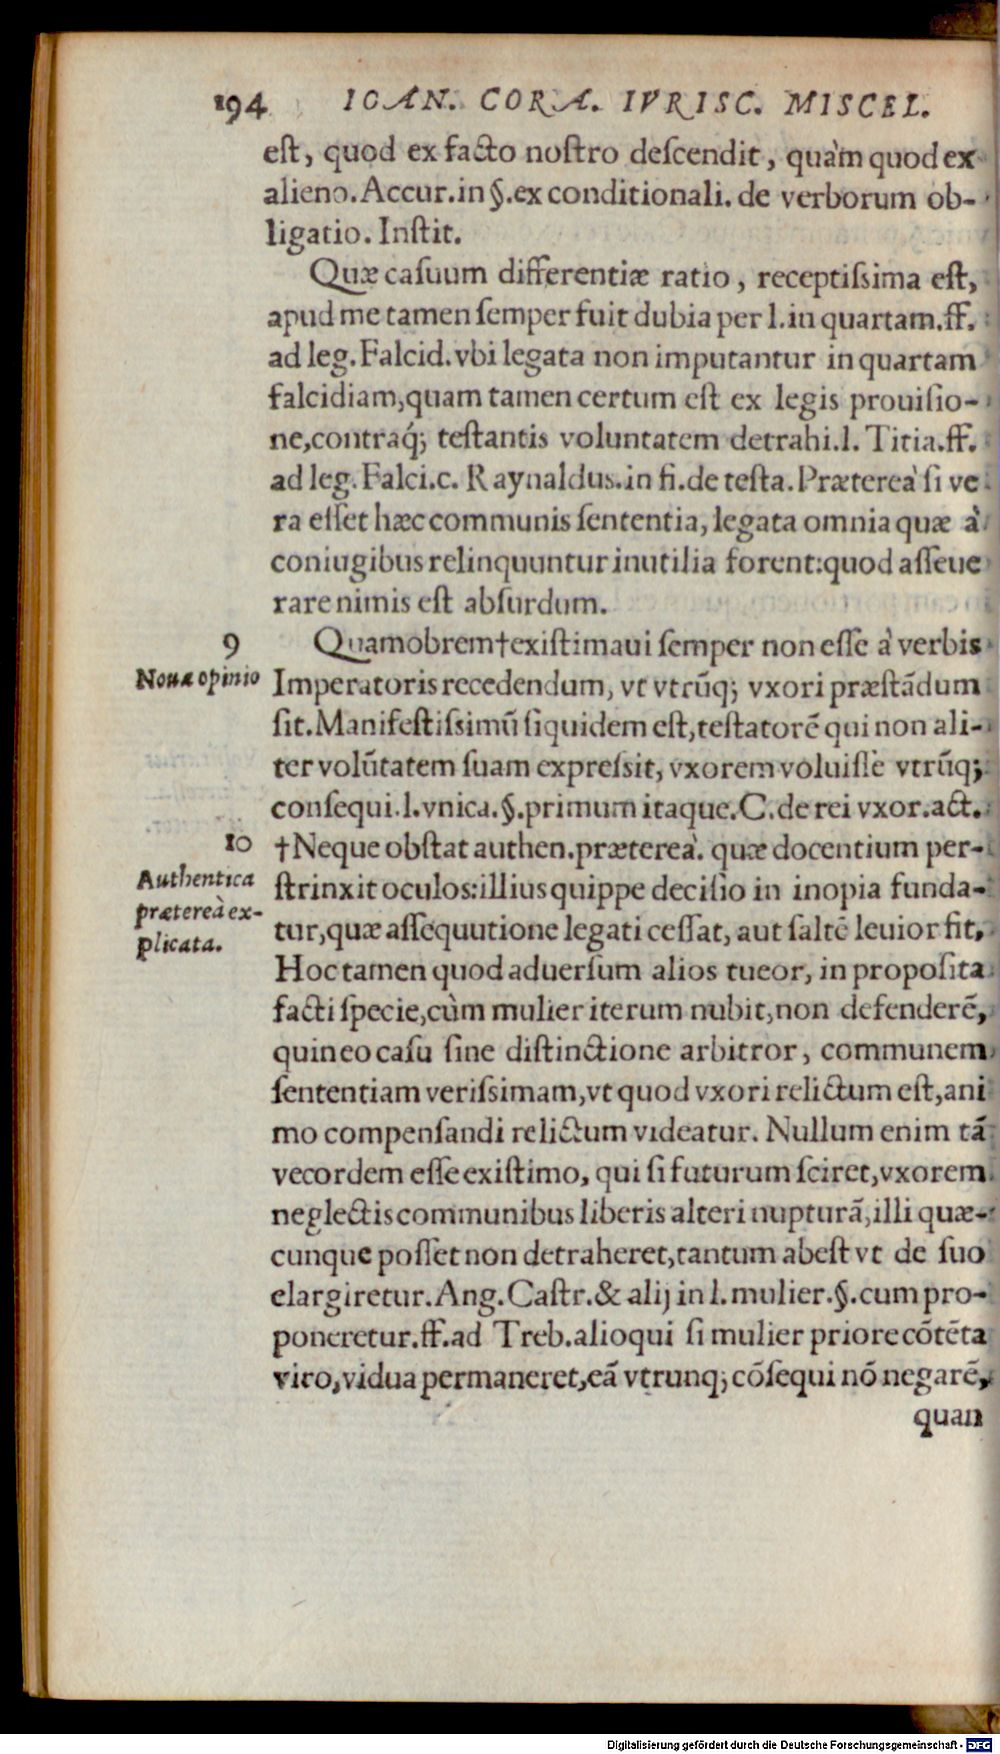 194 IOAN. CORA. IVRISC. MISCEL.
est, quod ex facto nostro descendit, quàm quod ex
alieno. Accur. in §. ex conditionali. de verborum ob-
ligatio. Instit.
Quæ casuum differentiæ ratio, receptissima est,
apud me tamen semper fuit dubia per l. in quartam. ff.
ad leg. Falcid. vbi legata non imputantur in quartam
falcidiam, quam tamen certum est ex legis prouisio-
ne, contraq́; testantis voluntatem detrahi. l. Titia. ff.
ad leg. Falci. c. Raynaldus. in fi. de testa. Prætereà si ve
ra esset hæc communis sententia, legata omnia quæ à
coniugibus relinquuntur inutilia forent: quod asseue
rare nimis est absurdum.
9
Quamobrem † existimaui semper non esse à verbis
Noua opinio
Imperatoris recedendum, vt vtrūq; vxori præstādum
sit. Manifestissimū siquidem est, testatorē qui non ali-
ter volūtatem suam expressit, vxorem voluisse vtrūq;
consequi. l. vnica. §. primum itaque. C. de rei vxor. act.
10
† Neque obstat authen. prætereà. quæ docentium per-
Authentica
prætereà ex-
plicata.
strinxit oculos: illius quippe decisio in inopia funda-
tur, quæ assequutione legati cessat, aut saltē leuior fit,
Hoc tamen quod aduersum alios tueor, in proposita
facti specie, cùm mulier iterum nubit, non defenderē,
quin eo casu sine distinctione arbitror, communem
sententiam verissimam, vt quod vxori relictum est, ani
mo compensandi relictum videatur. Nullum enim tā
vecordem esse existimo, qui si futurum sciret, vxorem
neglectis communibus liberis alteri nupturā, illi quæ-
cunque posset non detraheret, tantum abest vt de suo
elargiretur. Ang. Castr. & alij in l. mulier. §. cum pro-
poneretur. ff. ad Treb. alioqui si mulier priore cōtēta
viro, vidua permaneret, eā vtrunq; cōsequi nō negarē,
quan
Digitalisierung gefördert durch die Deutsche Forschungsgemeinschaft - DFG